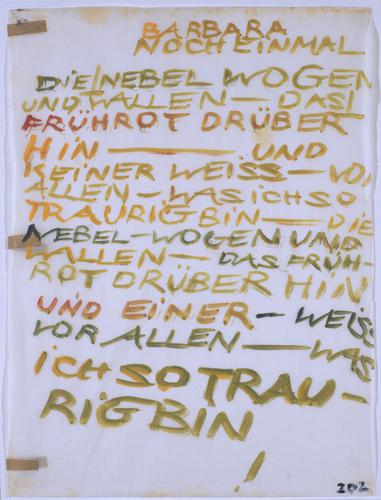 BARBARA
NOCH EINMAL
DIE NEBEL WOGEN
UND WALLEN — DAS
FRÜHROT DRÜBER
HIN — UND
KEINER WEISS — VOR
ALLEN — WAS ICH SO
TRAURIG BIN — DIE
NEBEL — WOGEN UND
WALLEN — DAS FRÜH-
ROT DRÜBER HIN
UND EINER — WEISS
VOR ALLEN — WAS
ICH SO TRAU-
RIG BIN
!
202